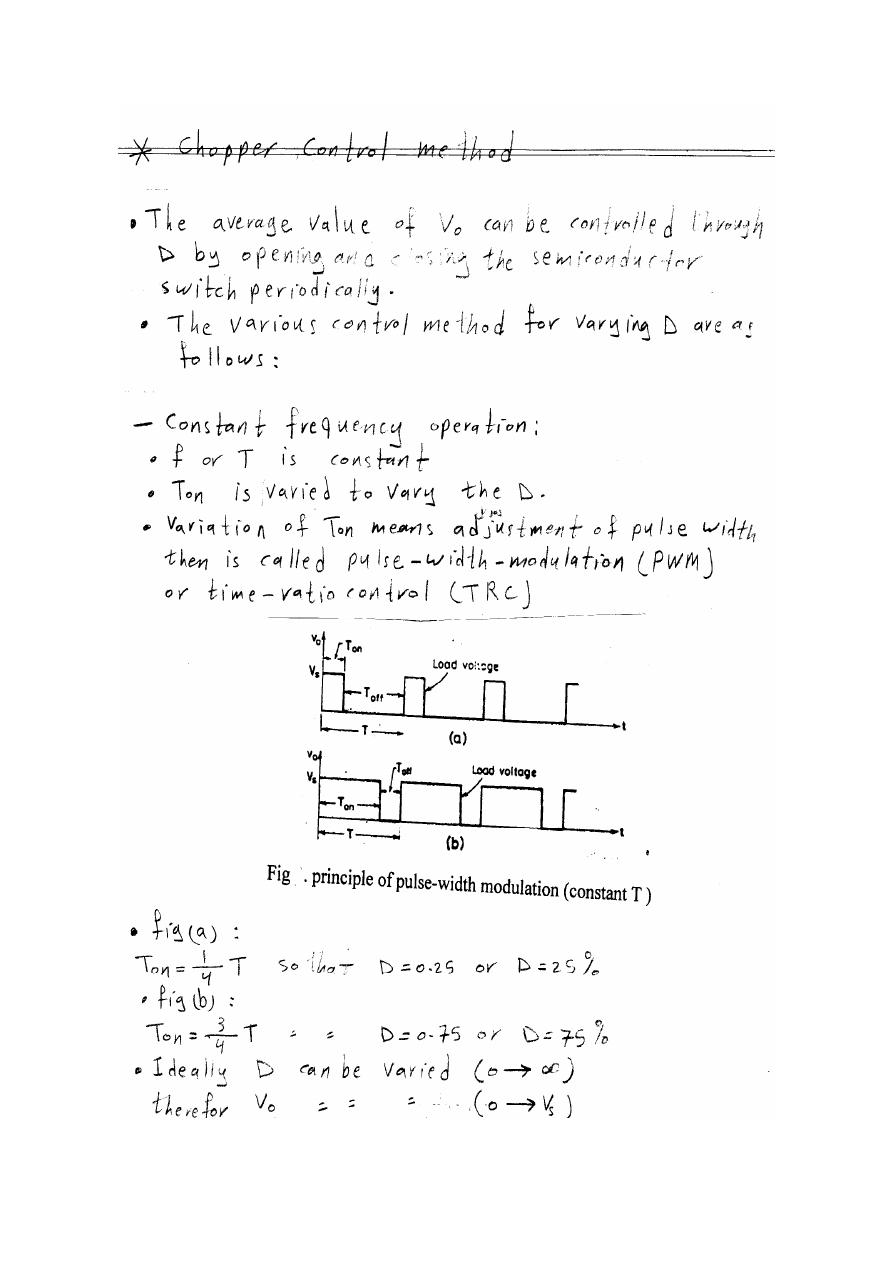 * Chopper Control method
• The average value of Vo can be controlled through
D by opening and closing the semiconductor
switch periodically.
• The various control method for varying D are as
follows:
— Constant frequency operation:
• f or T is constant
• Ton is varied to vary the D.
• Variation of Ton means adjustment of pulse width
then is called pulse-width-modulation (PWM)
or time-ratio control (TRC)
Vo
Ton
Vs
Load voltage
Toff
T
t
(a)
Vo
Toff
Load voltage
Vs
Ton
T
t
(b)
Fig . principle of pulse-width modulation (constant T )
• fig(a) :
Ton = 1/4 T so that D=0.25 or D=25%
• fig(b) :
Ton = 3/4 T = = D=0.75 or D=75%
• Ideally D can be varied (0→∞)
therefor Vo = = = (0→Vs)